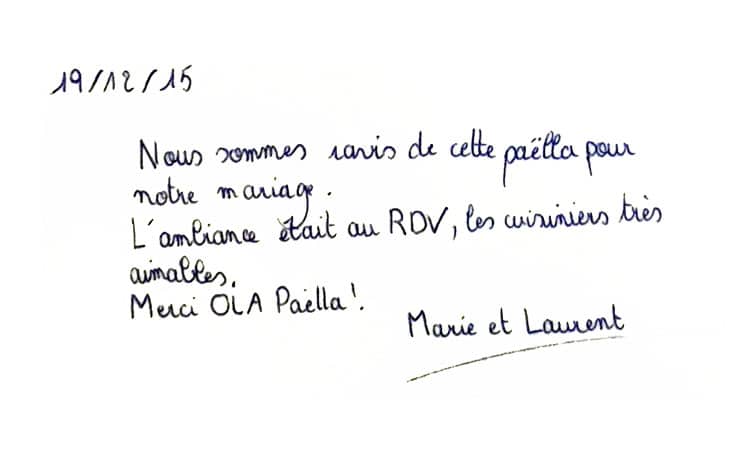 19/12/15
Nous sommes ravis de cette paëlla pour
notre mariage.
L'ambiance était au RDV, les cuisiniers très
aimables.
Merci OLA Paëlla !
Marie et Laurent